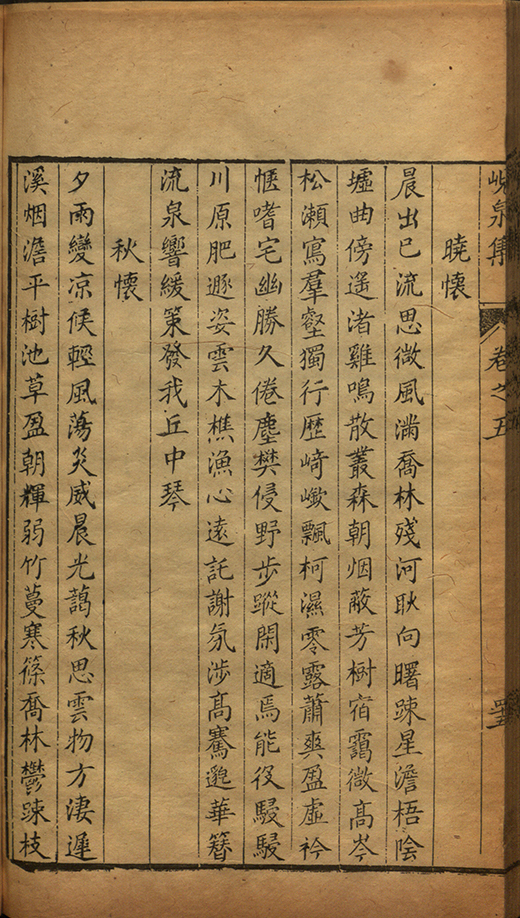 峴泉集 卷之五
曉懷
晨出已流思微風滿喬林殘河耿向曙踈星澹梧陰
墟曲傍遥渚雞鳴散叢森朝烟蔽芳樹宿靄微髙岑
松瀬寫羣壑獨行歴﨑嶔飄柯濕零露蕭爽盈虛衿
惬嗜宅幽勝久倦塵樊侵野步蹤閑適焉能役駸駸
川原肥遯姿雲木樵漁心遠託謝氛涉髙騫邈華簪
流泉響緩策發我丘中琴
秋懷
夕雨變凉候輕風蕩炎威晨光藹秋思雲物方淒遲
溪烟澹平樹池草盈朝輝弱竹蔓寒篠喬林鬱踈枝